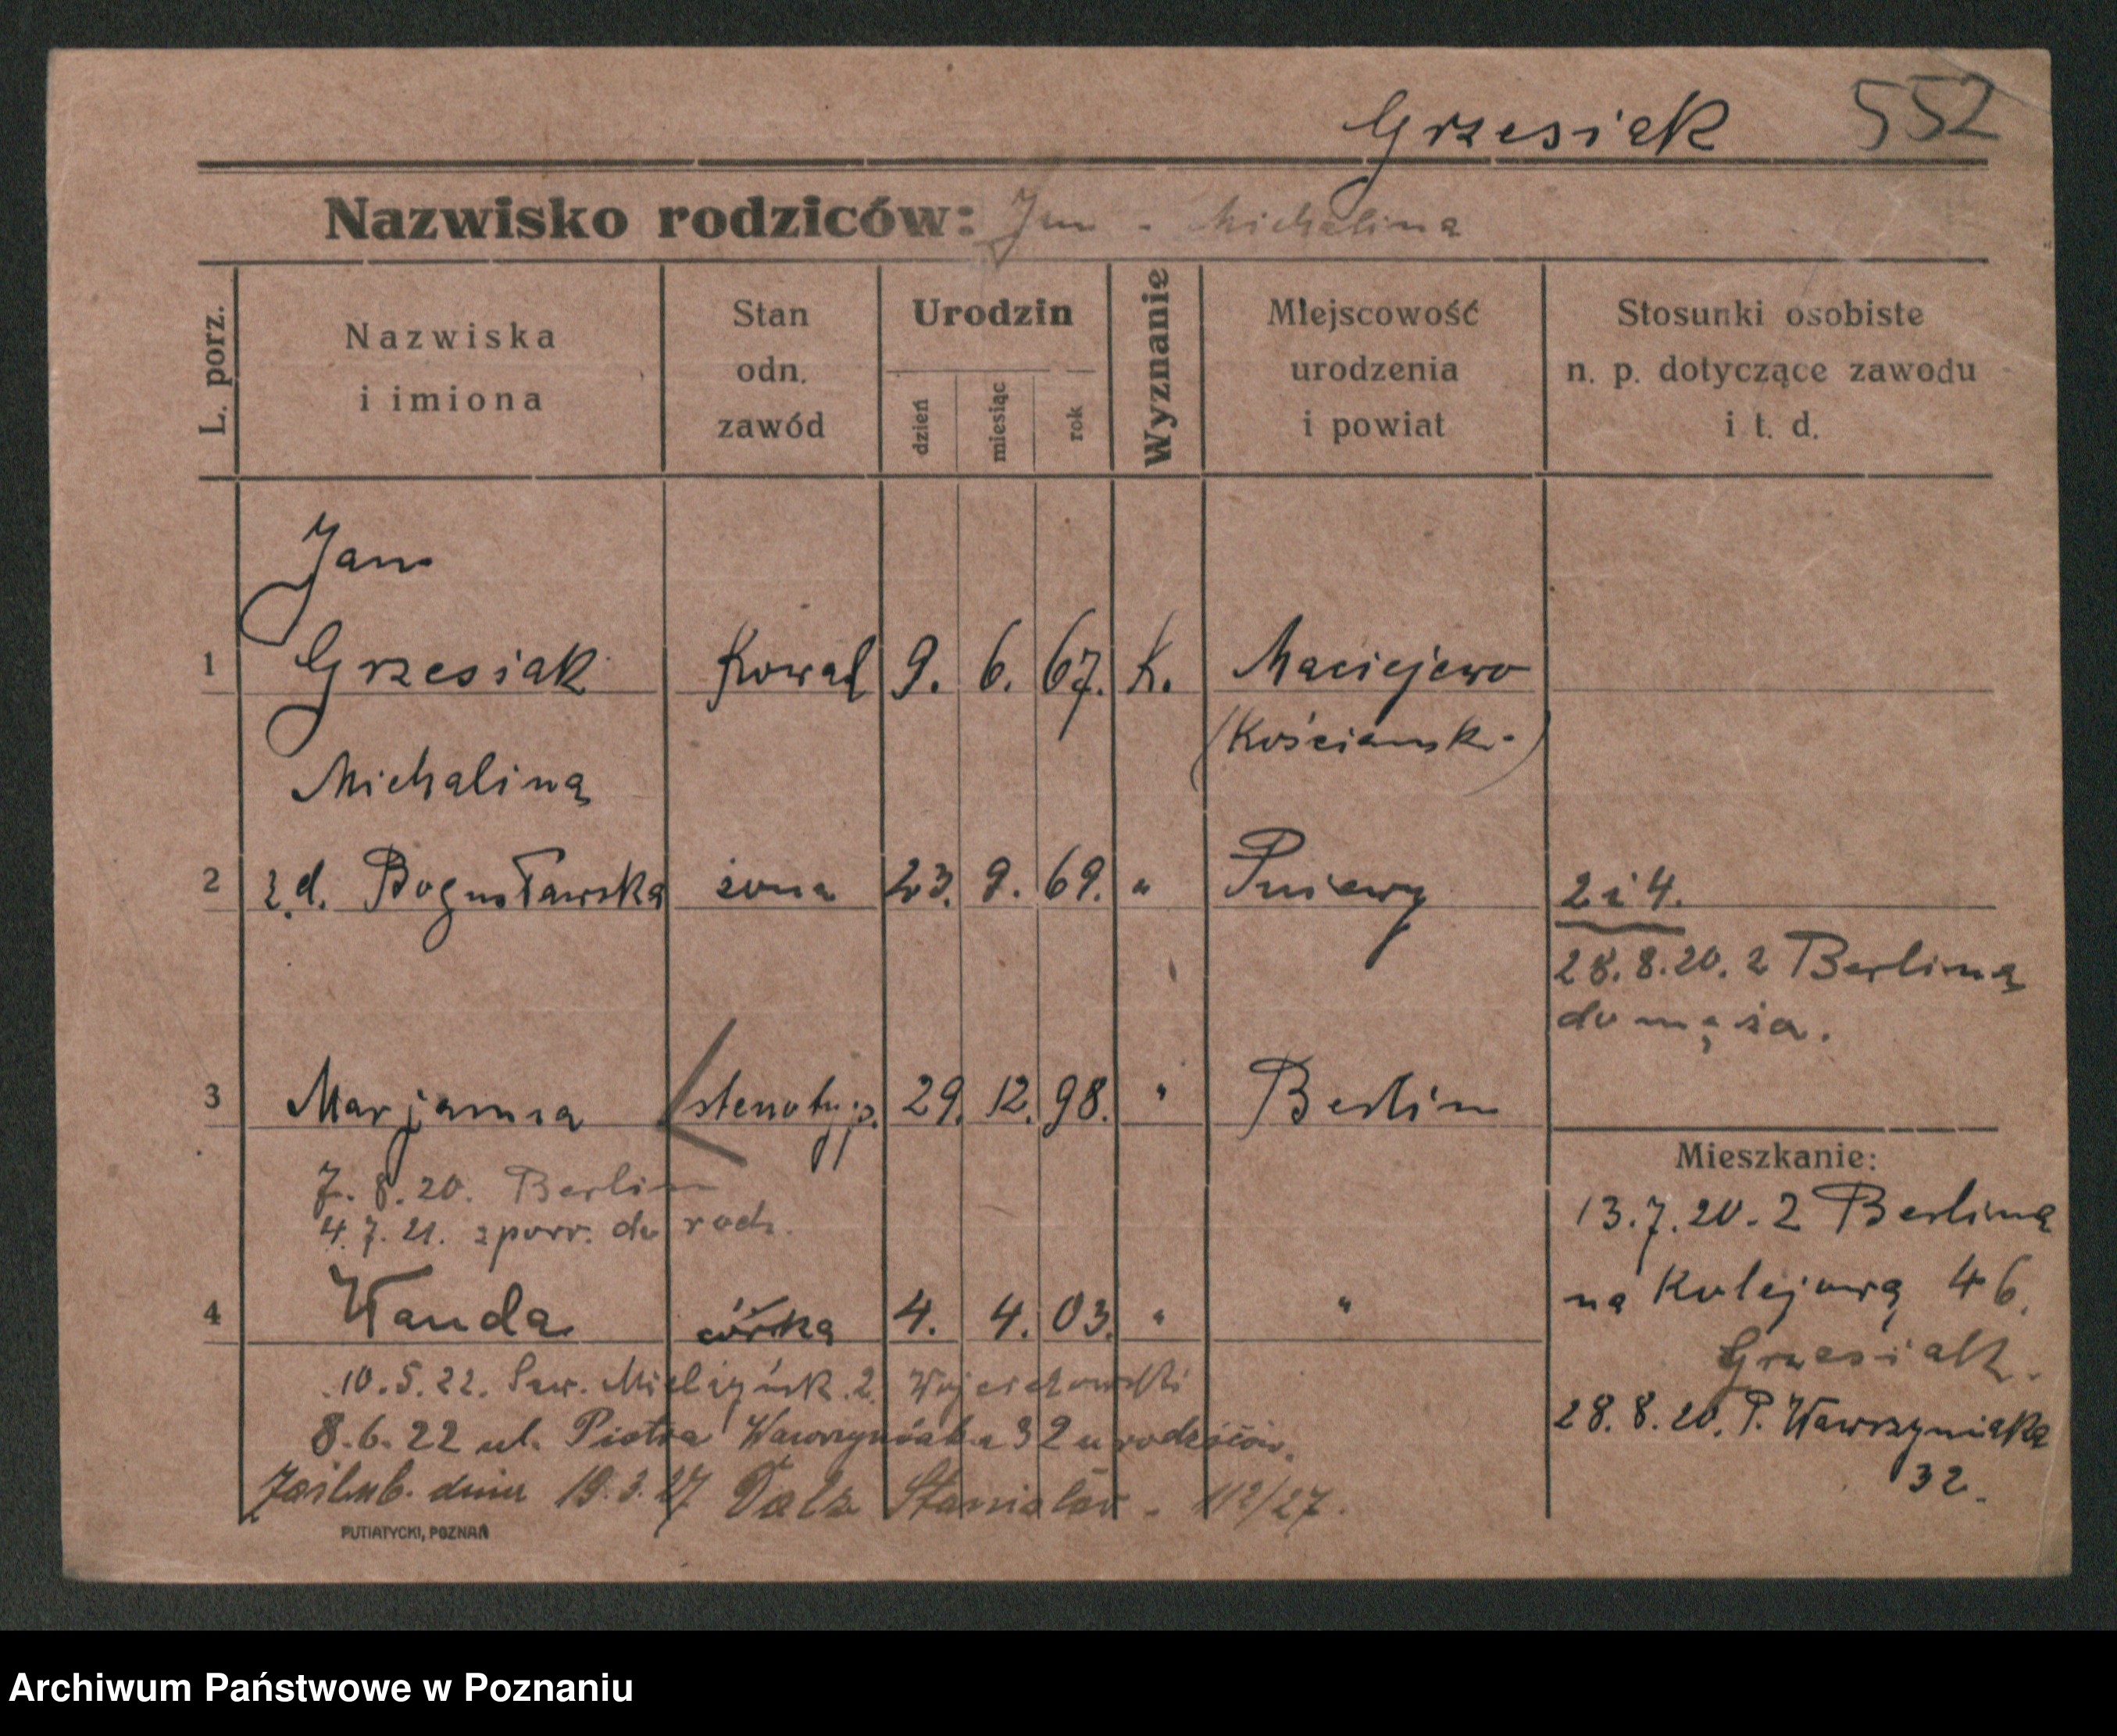 Grzesiak 552
Nazwisko rodziców: Jan - Michalina
L. porz.
Nazwiska
i imiona
Stan
odn.
zawód
Urodzin
dzień
miesiąc
rok
Wyznanie
Miejscowość
urodzenia
i powiat
Stosunki osobiste
n. p. dotyczące zawodu
i t. d.
Jan
1 Grzesiak Kowal 9. 6. 67. K. Maciejewo
(Kościański)
Michalina
2 z d. Bogusławska żona 23. 9. 69. " Pniewy
2 i 4.
28.8.20. z Berlina
do męża.
3 Marjanna stenotyp. 29. 12. 98. " Berlin
7. 8. 20. Berlin
4. 7. 21. z powr. do rodz.
4 Wanda córka 4. 4. 03. " "
10.5.22. Sew. Mielżyńsk. 2. Wojciechowski
8.6.22 ul. Piotra Wawrzyniaka 32 u rodziców.
Zaślub. dnia 19.3.27 Stanisław - 112/27.
Mieszkanie:
13.7.20. z Berlina
na Kolejową 46.
Grzesiak.
28.8.20. P. Wawrzyniaka
32.
PUTIATYCKI, POZNAŃ
Archiwum Państwowe w Poznaniu